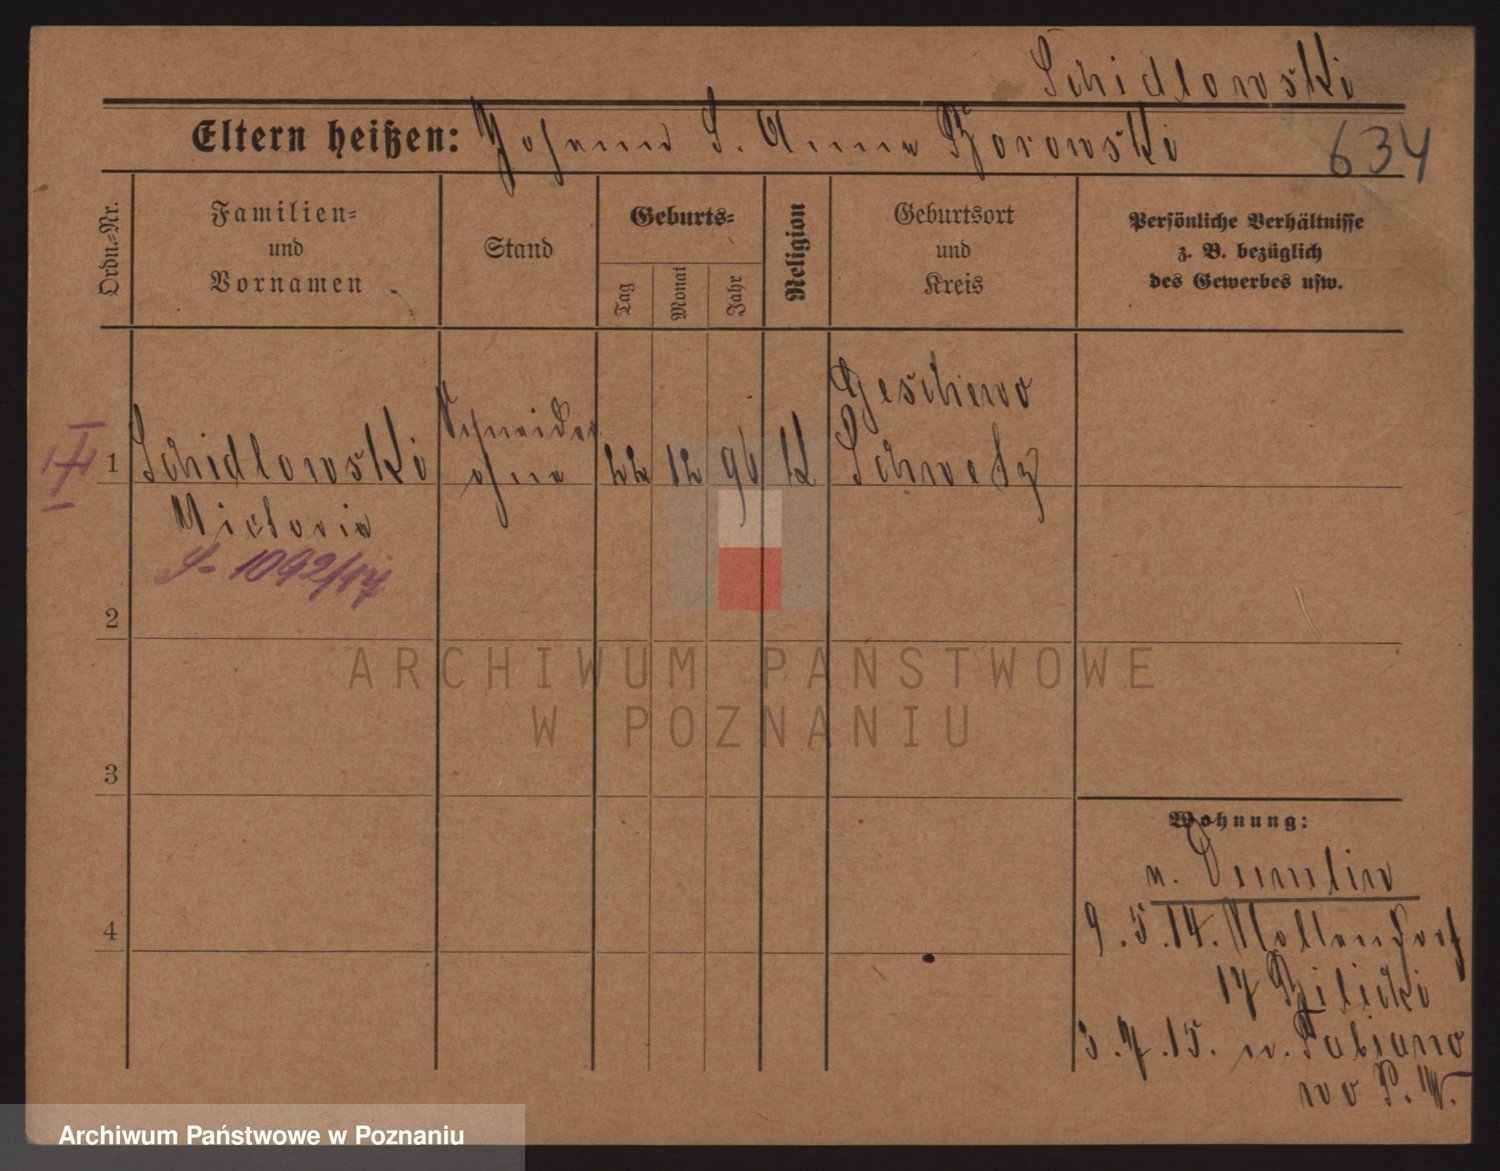 Schidlowski
Eltern heißen: Johann S. Anna Borowski
634
Ordn.-Nr.
Familien-
und
Vornamen
Stand
Geburts-
Tag
Monat
Jahr
Religion
Geburtsort
und
Kreis
Persönliche Verhältnisse
z. B. bezüglich
des Gewerbes usw.
1 Schidlowski
Victoria
S- 1092/17
Schneider
ohne
22 12 96 K
Beschewo
Schwetz
2
3
4
Wohnung:
n.
9.5.14. Mollendorf
17 Bilicki
3.7.15. n. Fabiano
wo P. W.
ARCHIWUM PAŃSTWOWE
W POZNANIU
Archiwum Państwowe w Poznaniu